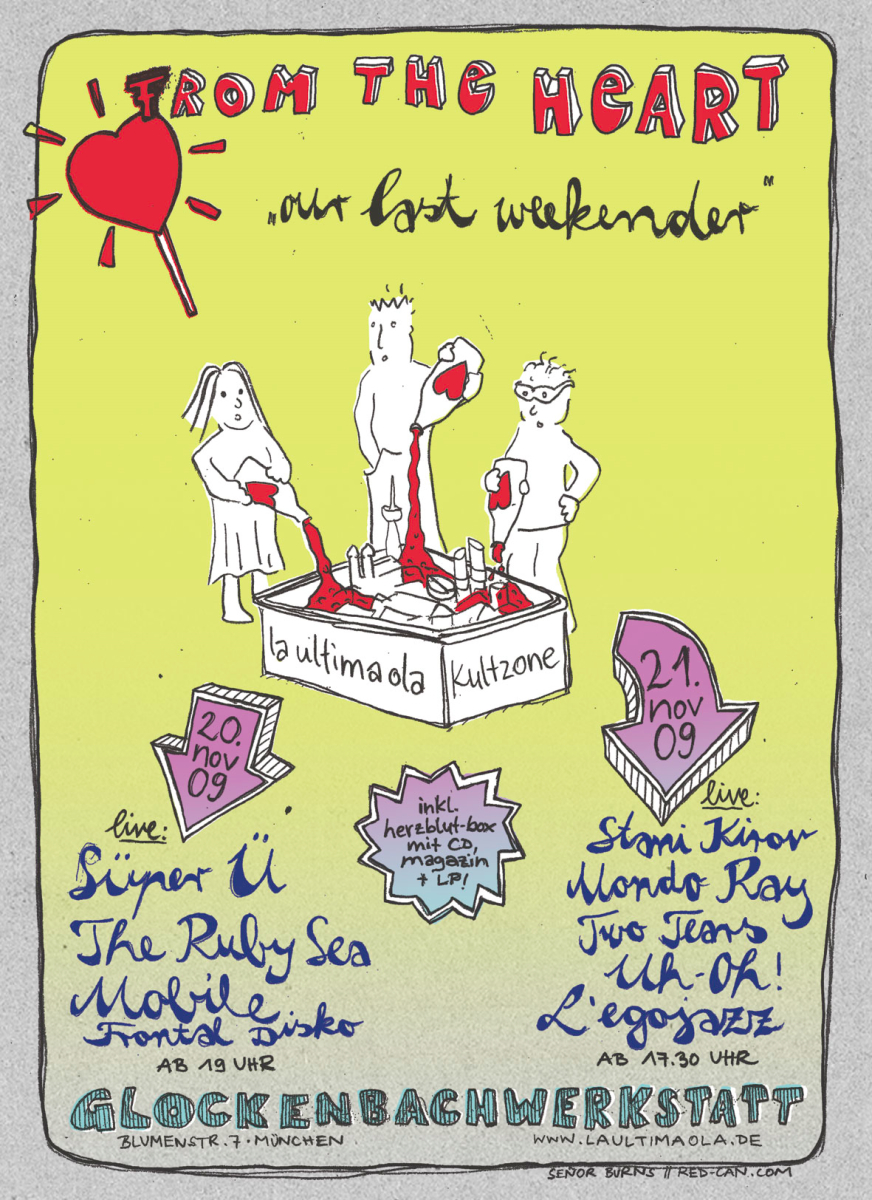 FROM THE HEART
„our last weekender"
la ultima ola
kultzone
20.
nov
09
21.
nov
09
inkl.
herzblut-box
mit CD,
magazin
+ LP!
live:
Süper Ü
The Ruby Sea
Mobile
Frontal Disko
AB 19 UHR
live:
Stami Kirov
Mondo Ray
Two Tears
Uh-Oh!
L'egojazz
AB 17.30 UHR
GLOCKENBACHWERKSTATT
BLUMENSTR. 7 · MÜNCHEN
WWW.LAULTIMAOLA.DE
SEÑOR BURNS // RED-CAN.COM